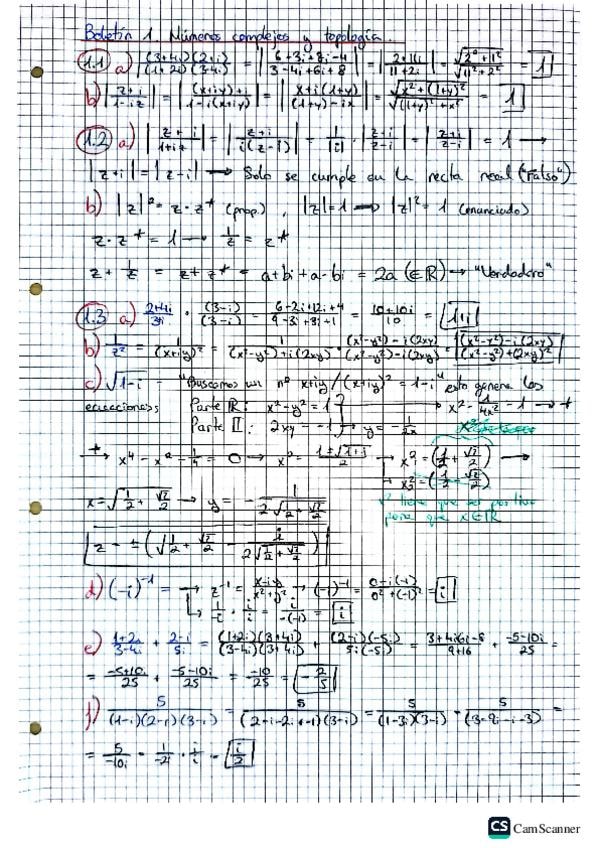 Boletín 1. Números complejos y topología.
1.1 a) |(3+4i)(2+i) / (1+2i)(3-4i)| = |6+3i+8i-4 / 3-4i+6i+8| = |2+11i / 11+2i| = √(2²+11²) / √(11²+2²) = 1
b) |z+i / 1-iz| = |(x+iy)+i / 1-i(x+iy)| = |x+i(1+y) / (1+y)-ix| = √(x²+(1+y)²) / √((1+y)²+x²) = 1
1.2 a) |z+i / 1+iz| = |z+i / i(z-i)| = 1/|i| · |z+i / z-i| = |z+i / z-i| = 1 →
|z+i| = |z-i| → Solo se cumple en la recta real ("Falso")
b) |z|² = z · z* (prop.), |z|=1 → |z|²=1 (enunciado)
z · z* = 1 → 1/z = z*
z + 1/z = z + z* = a+bi+a-bi = 2a (∈ℝ) → "Verdadero"
1.3 a) 2+4i / 3+i · (3-i)/(3-i) = 6-2i+12i+4 / 9-3i+3i+1 = 10+10i / 10 = 1+i
b) 1/z² = 1/(x+iy)² = 1/(x²-y²)+i(2xy) · (x²-y²)-i(2xy) / (x²-y²)-i(2xy) = (x²-y²)-i(2xy) / (x²-y²)²+(2xy)²
c) √1-i = "Buscamos un nº x+iy / (x+iy)² = 1-i" esto genera las
ecuaciones: Parte ℝ: x²-y²=1 → x² - 1/4x² = 1 → *
Parte II: 2xy = -1 → y = -1/2x
* → x⁴ - x² - 1/4 = 0 → x² = 1±√1+1 / 2 → x₁² = (1/2 + √2/2) →
→ x₂² = (1/2 - √2/2)
x = √(1/2 + √2/2) → y = - 1 / 2√(1/2 + √2/2)
x² tiene que ser positivo
para que x∈ℝ
z = ±(√(1/2 + √2/2) - i / 2√(1/2 + √2/2))
d) (-i)⁻¹ = → z⁻¹ = x-iy / x²+y² → (-i)⁻¹ = 0-i(-1) / 0²+(-1)² = i
→ 1/-i · i/i = i/-(-1) = i
e) 1+2i / 3-4i + 2-i / 5i = (1+2i)(3+4i) / (3-4i)(3+4i) + (2-i)(-5i) / 5i(-5i) = 3+4i6i-8 / 9+16 + -5-10i / 25 =
= -5+10i / 25 + -5-10i / 25 = -10/25 = -2/5
f) 5 / (1-i)(2-i)(3-i) = 5 / (2-i-2i-1)(3-i) = 5 / (1-3i)(3-i) = 5 / (3-9i-i-3) =
= 5 / -10i = 1/-2i · i/i = i/2
CS CamScanner